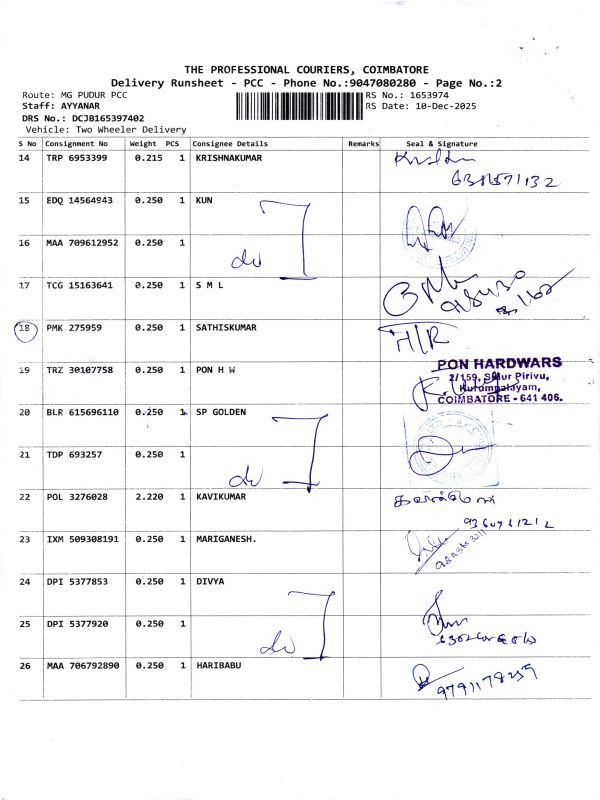 THE PROFESSIONAL COURIERS, COIMBATORE
Delivery Runsheet - PCC - Phone No.:9047080280 - Page No.:2
Route: MG PUDUR PCC RS No.: 1653974
Staff: AYYANAR RS Date: 10-Dec-2025
DRS No.: DCJB165397402
Vehicle: Two Wheeler Delivery
S No Consignment No Weight PCS Consignee Details Remarks Seal & Signature
14 TRP 6953399 0.215 1 KRISHNAKUMAR
15 EDQ 14564943 0.250 1 KUN
16 MAA 709612952 0.250 1
17 TCG 15163641 0.250 1 S M L
18 PMK 275959 0.250 1 SATHISKUMAR H/R
19 TRZ 30107758 0.250 1 PON H W
PON HARDWARS
2/159, Salur Pirivu,
Kurumpalayam,
COIMBATORE - 641 406.
20 BLR 615696110 0.250 1 SP GOLDEN
21 TDP 693257 0.250 1
22 POL 3276028 2.220 1 KAVIKUMAR
23 IXM 509308191 0.250 1 MARIGANESH.
24 DPI 5377853 0.250 1 DIVYA
25 DPI 5377920 0.250 1
26 MAA 706792890 0.250 1 HARIBABU
9791178259